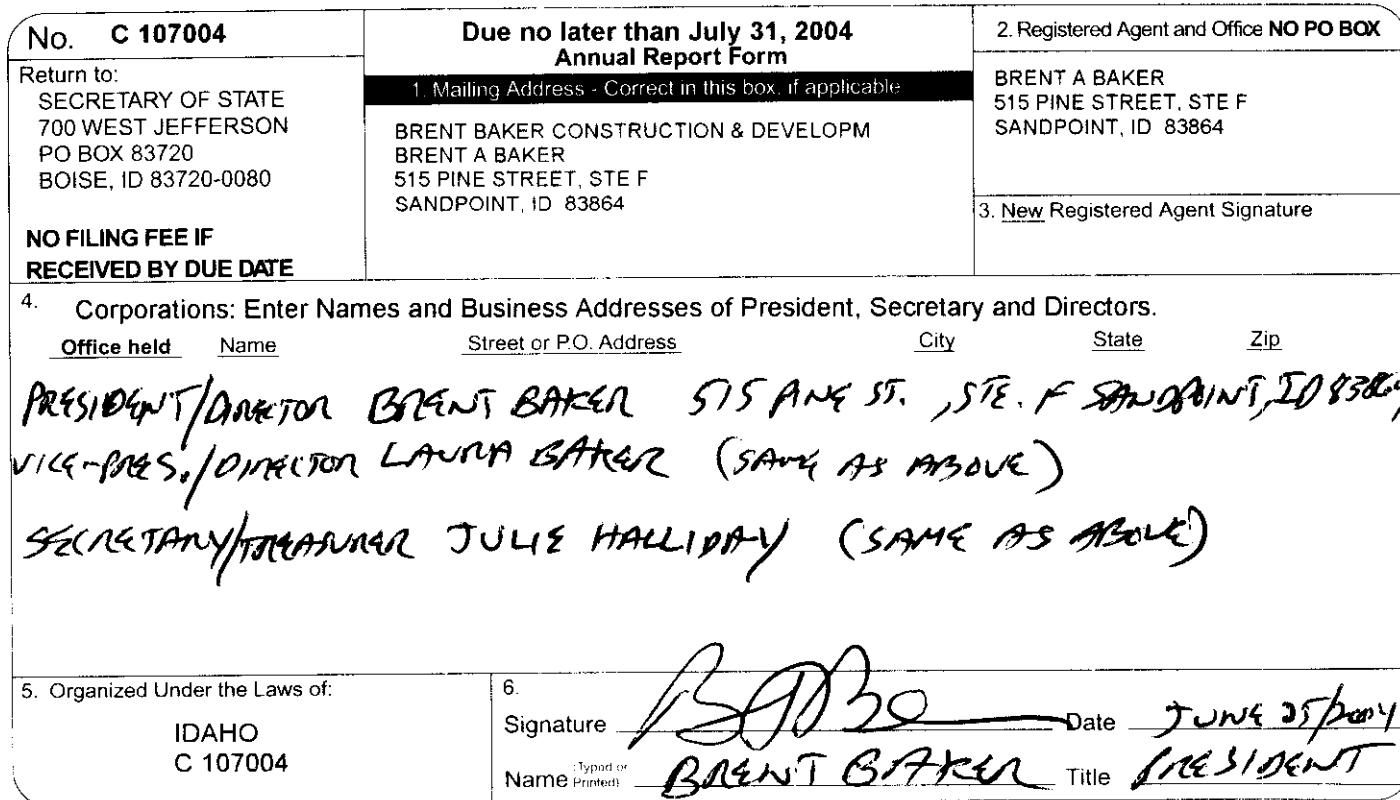 No. C 107004
Return to:
SECRETARY OF STATE
700 WEST JEFFERSON
PO BOX 83720
BOISE, ID 83720-0080
NO FILING FEE IF
RECEIVED BY DUE DATE
Due no later than July 31, 2004
Annual Report Form
1. Mailing Address - Correct in this box, if applicable
BRENT BAKER CONSTRUCTION & DEVELOPM
BRENT A BAKER
515 PINE STREET, STE F
SANDPOINT, ID 83864
2. Registered Agent and Office NO PO BOX
BRENT A BAKER
515 PINE STREET, STE F
SANDPOINT, ID 83864
3. New Registered Agent Signature
4. Corporations: Enter Names and Business Addresses of President, Secretary and Directors.
Office held Name Street or P.O. Address City State Zip
PRESIDENT/DIRECTOR BRENT BAKER 515 PINE ST., STE. F SANDPOINT, ID 83864
VICE-PRES./DIRECTOR LAURA BAKER (SAME AS ABOVE)
SECRETARY/TREASURER JULIE HALLIDAY (SAME AS ABOVE)
5. Organized Under the Laws of:
IDAHO
C 107004
6.
Signature Date JUNE 25/2004
Name (Typed or Printed) BRENT BAKER Title PRESIDENT